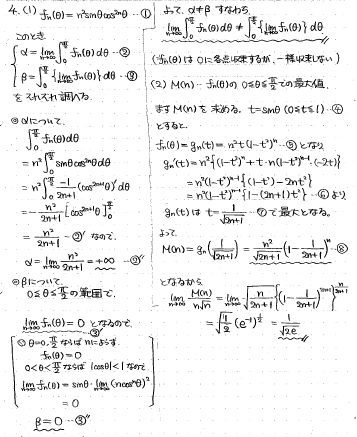 4. (1) fₙ(θ) = n² sinθ cos²ⁿθ … ①
このとき
{ α = lim_{n→∞} ∫₀^{π/2} fₙ(θ) dθ … ②
β = ∫₀^{π/2} { lim_{n→∞} fₙ(θ) } dθ … ③
をそれぞれ調べる.
◎ αについて.
∫₀^{π/2} fₙ(θ) dθ
= n² ∫₀^{π/2} sinθ cos²ⁿθ dθ
= n² ∫₀^{π/2} -1/(2n+1) (cos²ⁿ⁺¹θ)' dθ
= - n²/(2n+1) [cos²ⁿ⁺¹θ]₀^{π/2}
= n²/(2n+1) … ②' なので.
α = lim_{n→∞} n²/(2n+1) = +∞ … ②''
◎ βについて.
0≦θ≦π/2 の範囲で.
lim_{n→∞} fₙ(θ) = 0 となるので … ③'
∵ θ=0, π/2 ならば nによらず.
fₙ(θ) = 0
0<θ<π/2 ならば |cosθ|<1 なので.
lim_{n→∞} fₙ(θ) = sinθ · lim_{n→∞} (n cosⁿθ)²
= 0
β = 0 … ③''
よって, α≠β すなわち
lim_{n→∞} ∫₀^{π/2} fₙ(θ) dθ ≠ ∫₀^{π/2} { lim_{n→∞} fₙ(θ) } dθ
(∵ fₙ(θ) は 0に各点収束するが, 一様収束しない)
(2) M(n) … fₙ(θ) の 0≦θ≦π/2 での最大値.
まず M(n) を求める. t = sinθ (0≦t≦1) … ④
とすると.
fₙ(θ) = gₙ(t) = n² t (1-t²)ⁿ … ⑤ となり
gₙ'(t) = n² { (1-t²)ⁿ + t · n(1-t²)ⁿ⁻¹ · (-2t) }
= n² (1-t²)ⁿ⁻¹ { (1-t²) - 2nt² }
= n² (1-t²)ⁿ⁻¹ { 1 - (2n+1)t² } … ⑥ より
gₙ(t) は t = 1/√(2n+1) … ⑦ で最大となる.
よって
M(n) = gₙ(1/√(2n+1)) = n²/√(2n+1) (1 - 1/(2n+1))ⁿ … ⑧
となるから
lim_{n→∞} M(n)/(n√n) = lim_{n→∞} √(n/(2n+1)) { (1 - 1/(2n+1))²ⁿ⁺¹ }^{n/(2n+1)}
= √(1/2) (e⁻¹)^{1/2} = 1/√(2e)